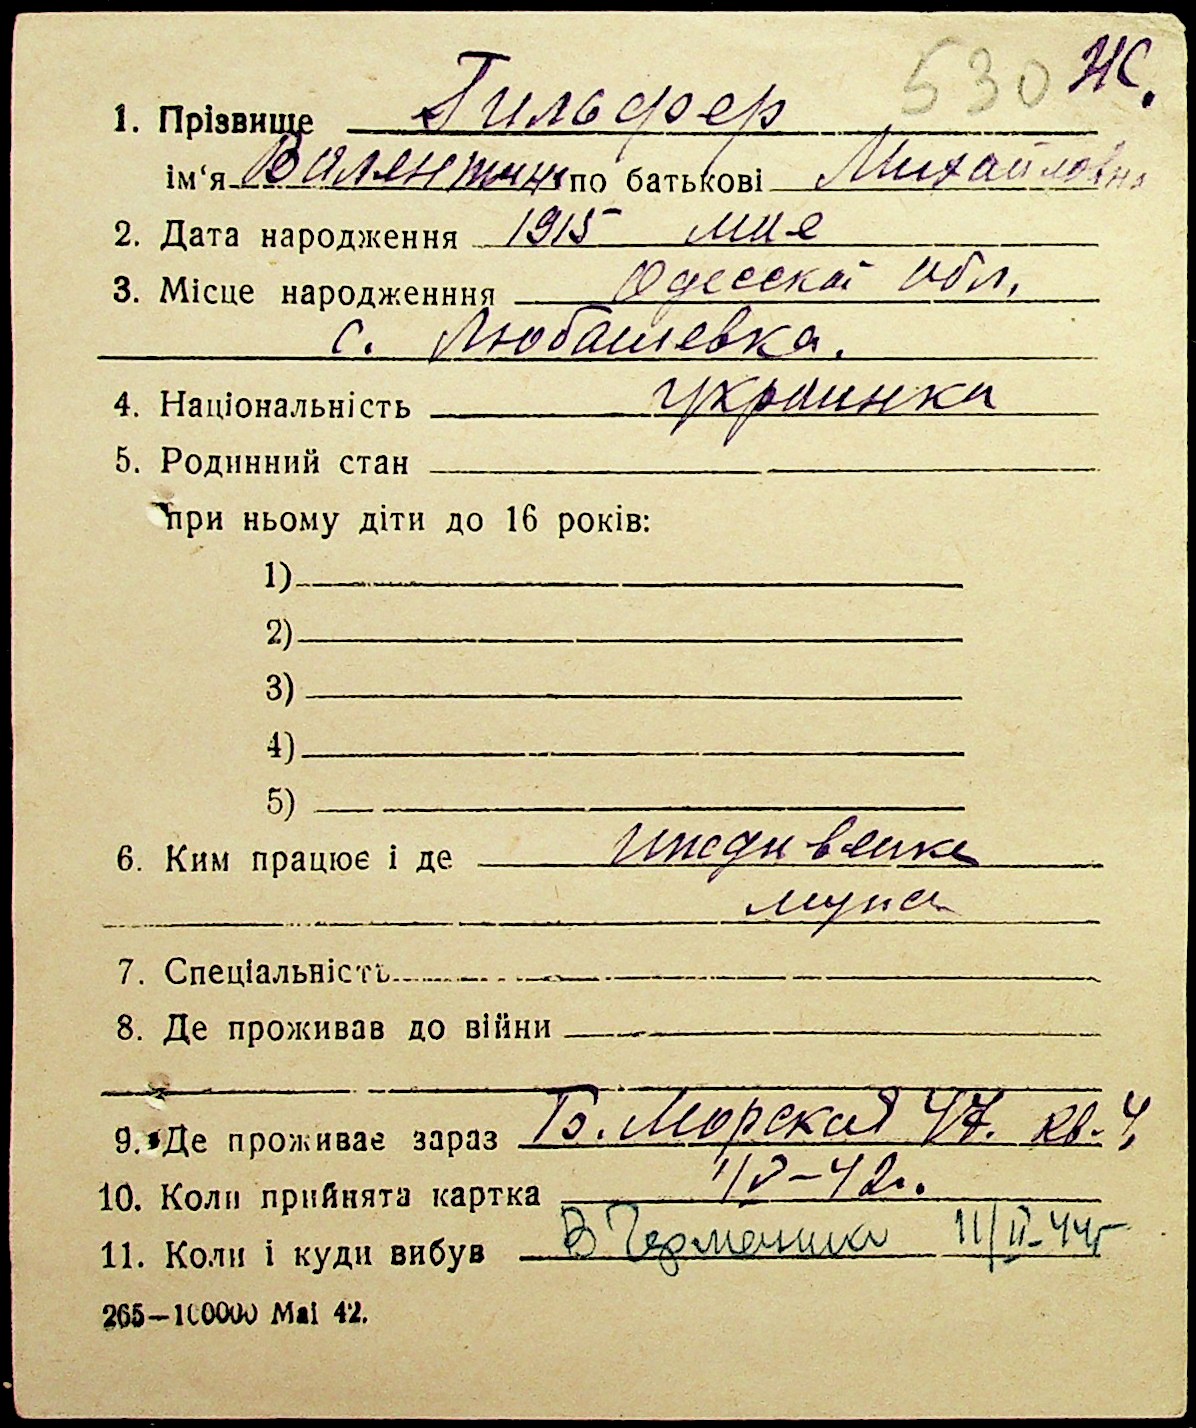 530 Ж.
1. Прізвище Гильфер
ім‘я Валентина по батькові Михайловна
2. Дата народження 1915 мая
3. Місце народженння Одесской обл.
с. Любашевка.
4. Національність украинка
5. Родинний стан
при ньому діти до 16 років:
1)
2)
3)
4)
5)
6. Ким працює і де иждивенка
мужа
7. Спеціальність
8. Де проживав до війни
9. Де проживає зараз Б. Морская 47. кв. 4
10. Коли прийнята картка
11. Коли і куди вибув В Германию 11/II-44г
265—100000 Маі 42.